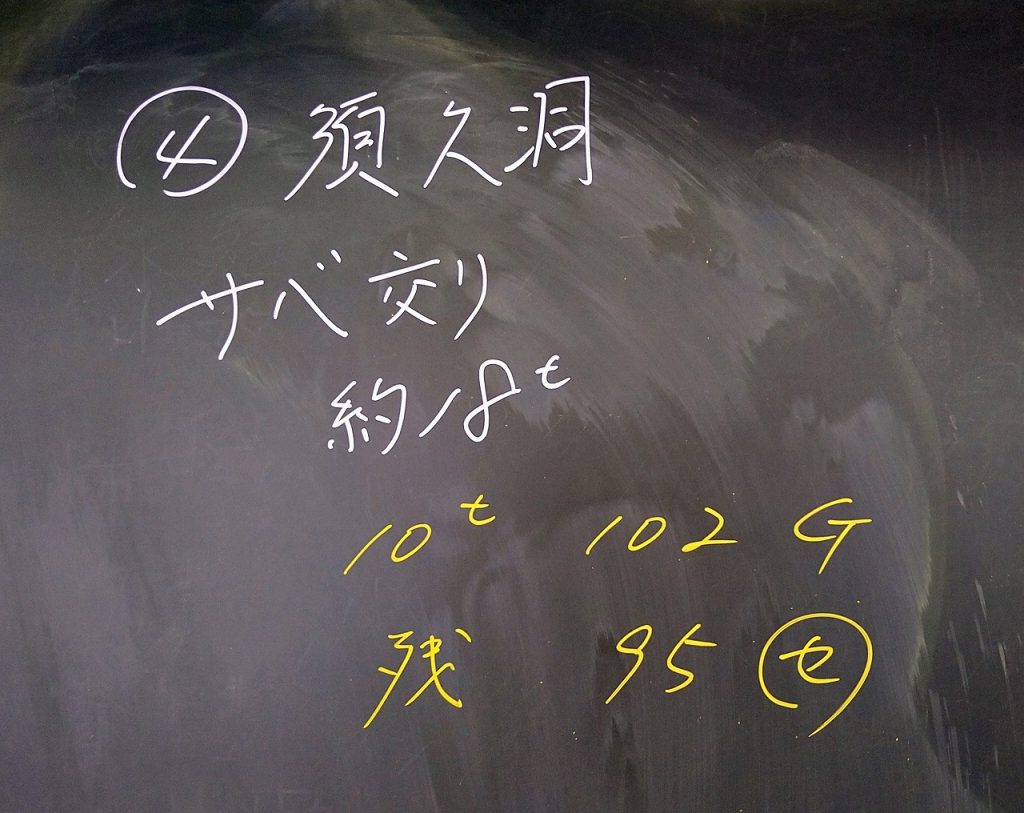 ④ 須久洞
サバ交り
約18t
10t 102 G
残 95 ㋝